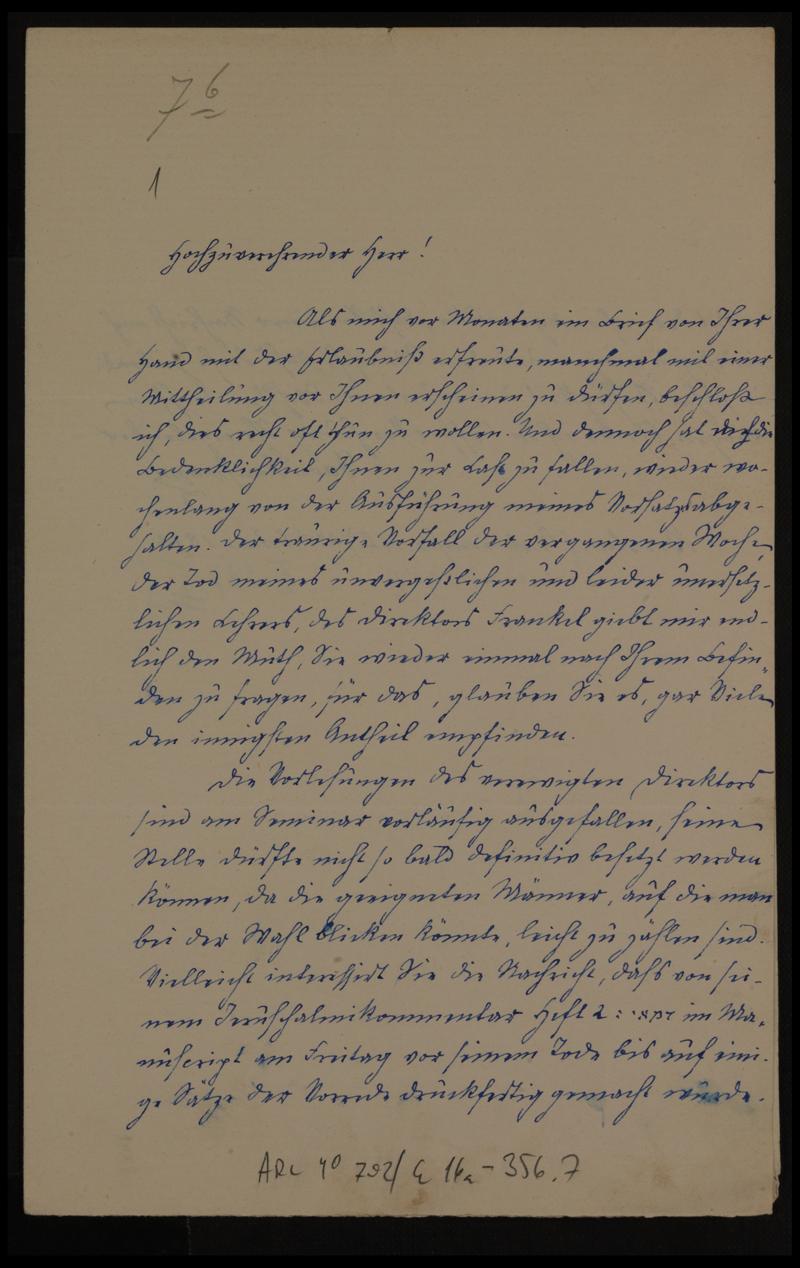 76
1
Hochzuverehrender Herr!
Als mich vor Monaten ein Brief von Ihrer
Hand mit der Erlaubniß erfreute, manchmal mit einer
Mittheilung vor Ihnen erscheinen zu dürfen, beschloß
ich, dies recht oft thun zu wollen. Und dennoch hat die
Bedenklichkeit, Ihnen zur Last zu fallen, wieder wo-
chenlang von der Ausführung meines Vorsatzes abge-
halten. Der traurige Vorfall der vergangenen Woche,
der Tod meines unvergeßlichen und leider unersetz-
lichen Lehrers, des Direktors Frankel giebt mir end-
lich den Muth, Sie wieder einmal nach Ihrem Befin-
den zu fragen, für das, glauben Sie es, gar Viele
den innigsten Antheil empfinden.
Die Vorlesungen des verewigten Direktors
sind am Seminar vorläufig ausgefallen, seine
Stelle dürfte nicht so bald definitiv besetzt werden
können, da die geeigneten Männer, auf die man
bei der Wahl blicken könnte, leicht zu zählen sind.
Vielleicht interessirt Sie die Nachricht, daſs von sei-
nem Jeruschalmikommentar Heft 2: im Ma-
nuscript am Freitag vor seinem Tode bis auf eini-
ge Sätze der Vorrede druckfertig gemacht wurde.
ARC 4° 792/ G 16a-356.7